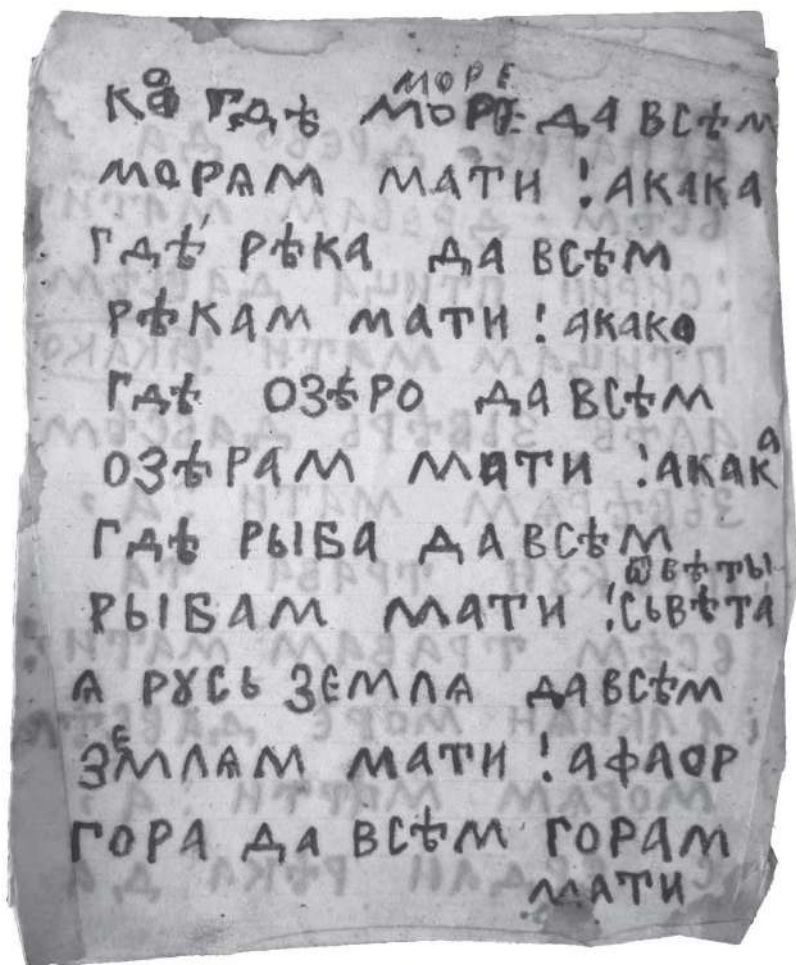 МОРЕ
КО ГДѢ МОРЕ ДА ВСѢМ
МОРАМ МАТИ ! АКАКА
ГДѢ РѢКА ДА ВСѢМ
РѢКАМ МАТИ ! АКАКО
ГДѢ ОЗѢРО ДА ВСѢМ
ОЗѢРАМ МАТИ ! АКАКА
ГДѢ РЫБА ДА ВСѢМ
РЫБАМ МАТИ ! СЬВѢТА
А РꙊСЬ ЗЕМЛѦ ДА ВСѢМ
ЗЕМЛѦМ МАТИ ! АФАОР
ГОРА ДА ВСѢМ ГОРАМ
МАТИ